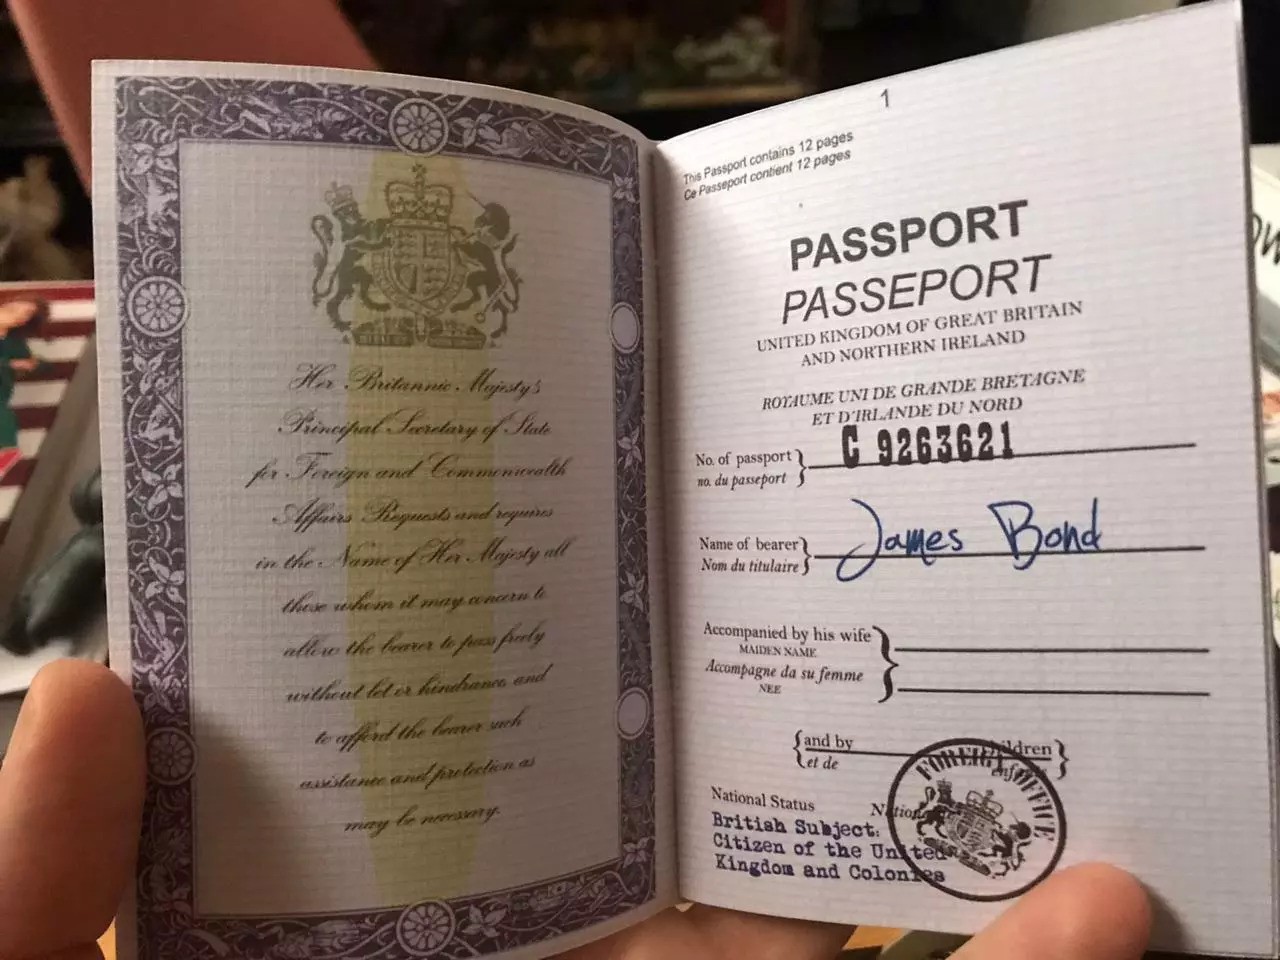 Her Britannic Majesty's
Principal Secretary of State
for Foreign and Commonwealth
Affairs Requests and requires
in the Name of Her Majesty all
those whom it may concern to
allow the bearer to pass freely
without let or hindrance, and
to afford the bearer such
assistance and protection as
may be necessary.
1
This Passport contains 12 pages
Ce Passeport contient 12 pages
PASSPORT
PASSEPORT
UNITED KINGDOM OF GREAT BRITAIN
AND NORTHERN IRELAND
ROYAUME UNI DE GRANDE BRETAGNE
ET D'IRLANDE DU NORD
No. of passport C 9263621
no. du passeport
Name of bearer James Bond
Nom du titulaire
Accompanied by his wife
MAIDEN NAME
Accompagne da su femme
NEE
and by children
et de
National Status
British Subject:
Citizen of the United
Kingdom and Colonies
FOREIGN OFFICE